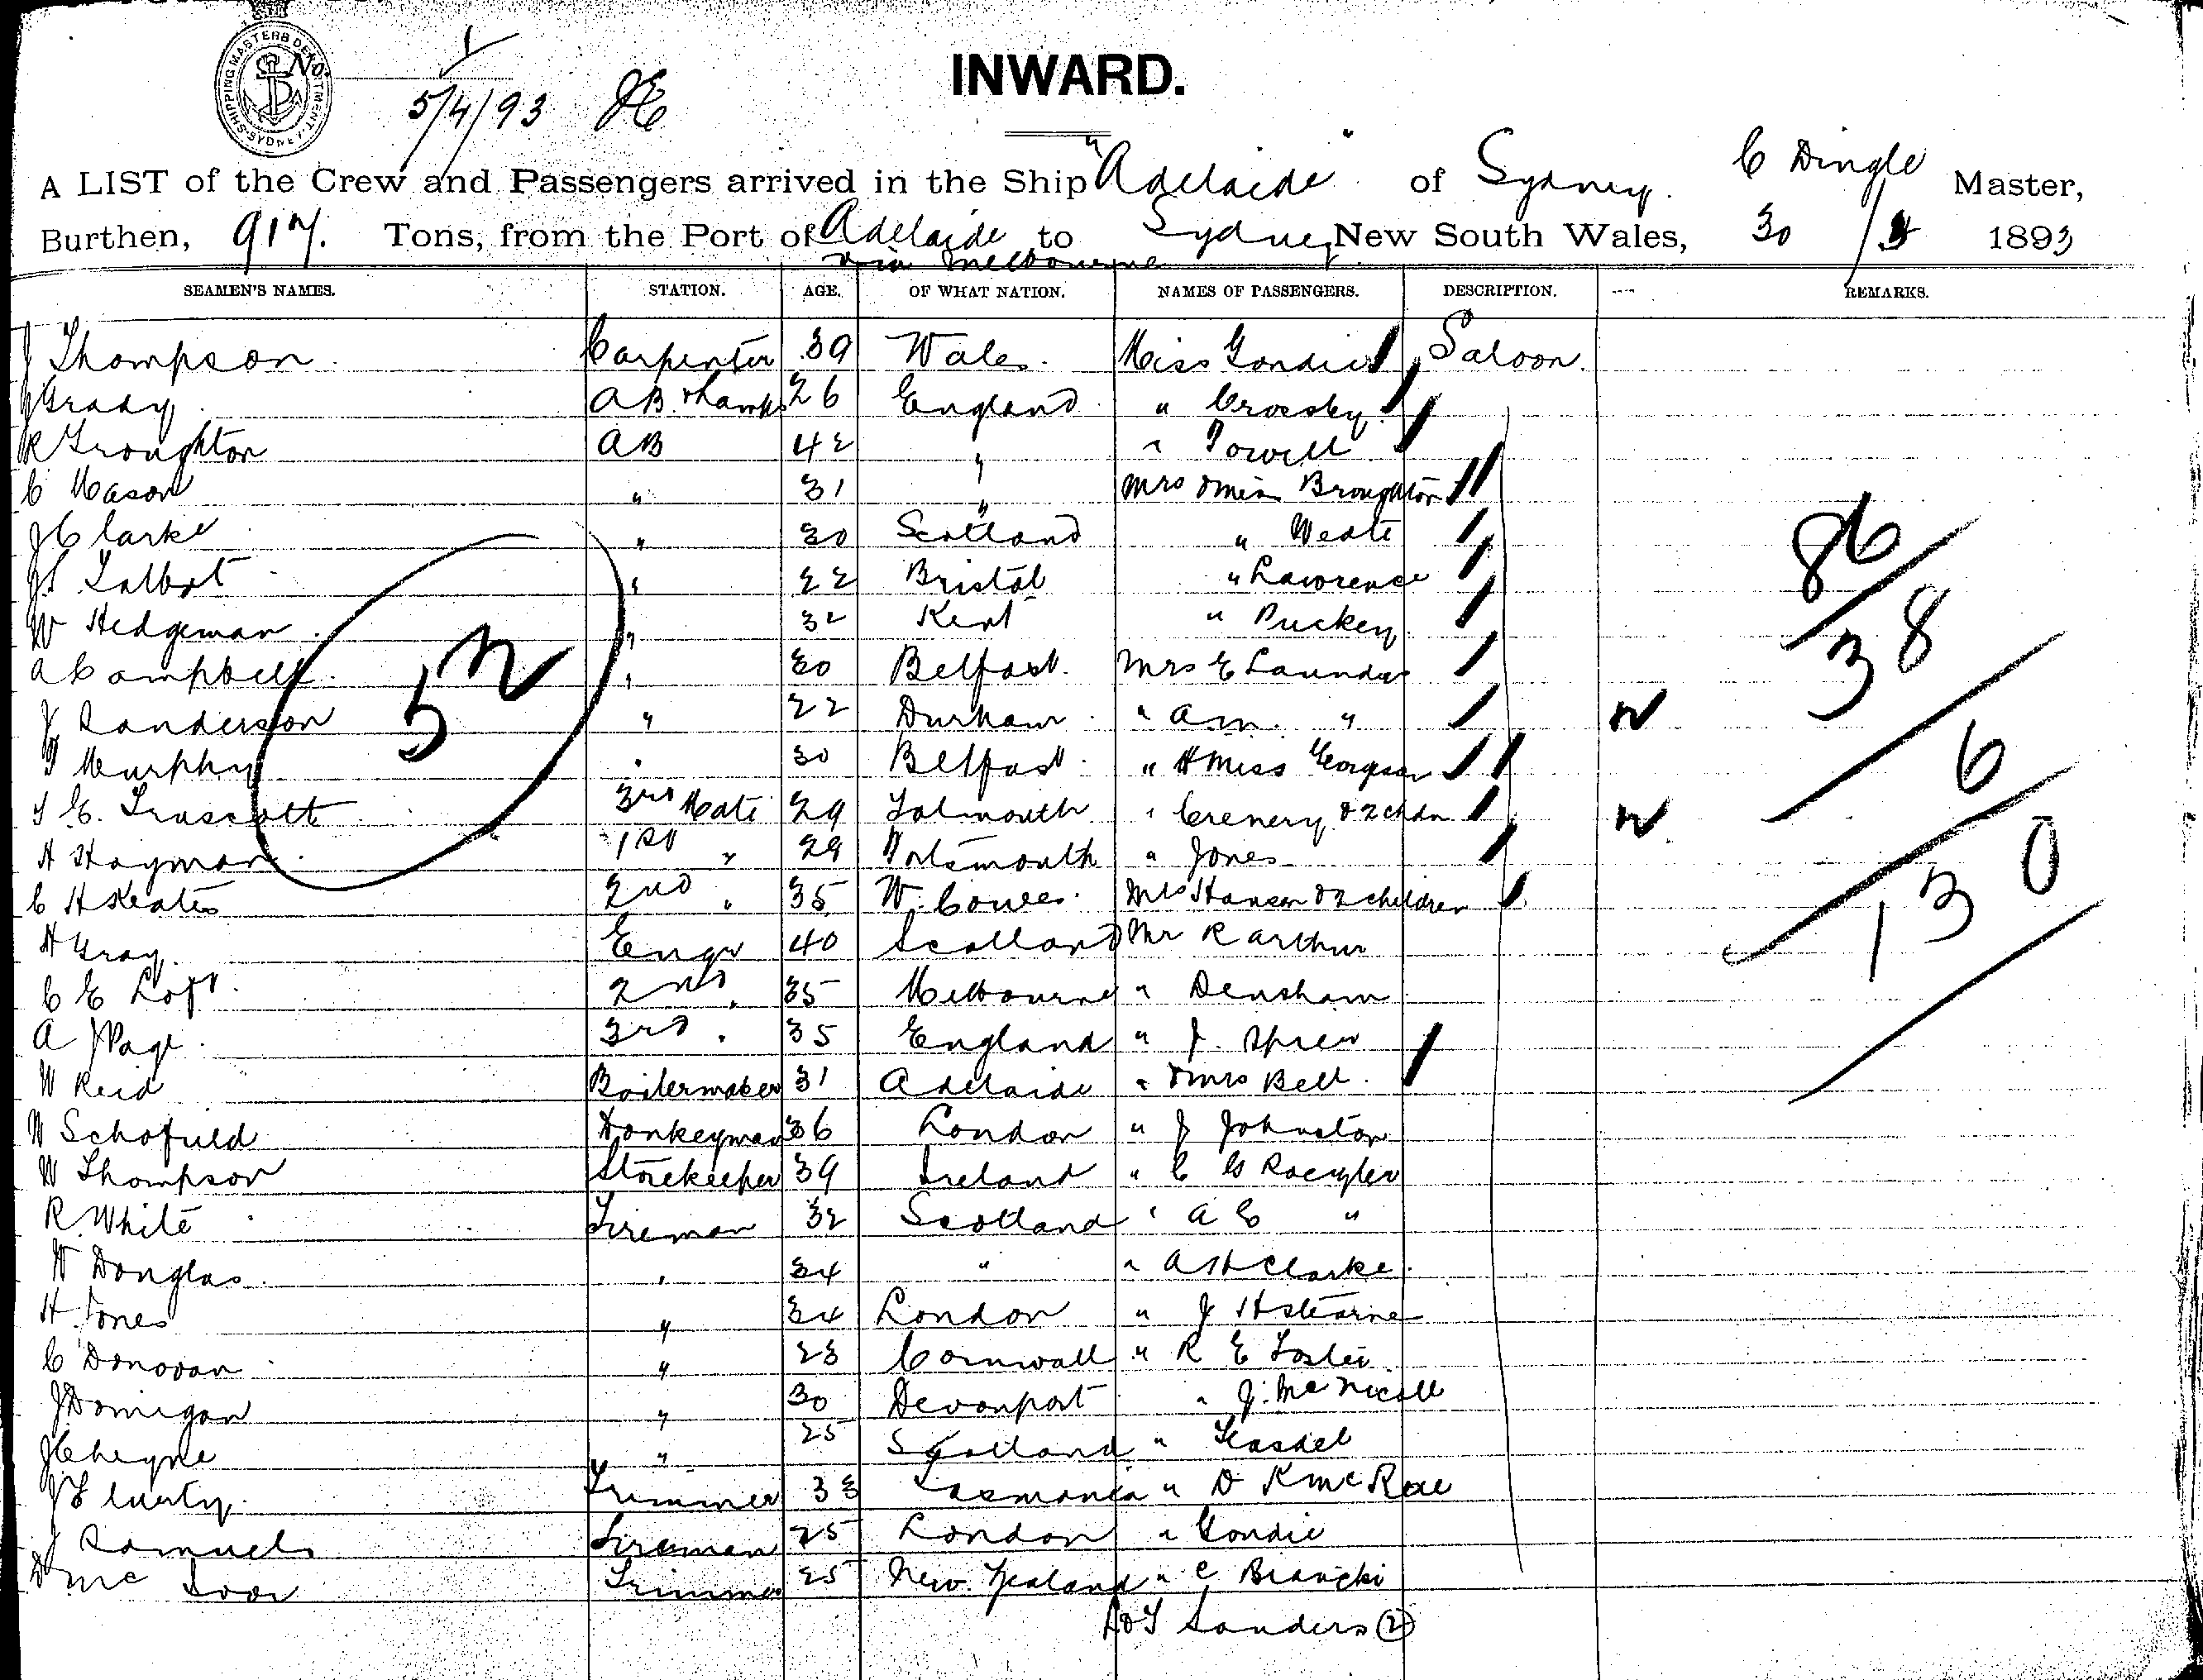 SHIPPING MASTERS DEPARTMENT SYDNEY
No.
5/4/93 JE
INWARD.
A LIST of the Crew and Passengers arrived in the Ship "Adelaide" of Sydney. C Dingle Master,
Burthen, 917. Tons, from the Port of Adelaide to Sydney New South Wales, 30 / 1893
via Melbourne
SEAMEN'S NAMES. STATION. AGE. OF WHAT NATION. NAMES OF PASSENGERS. DESCRIPTION. REMARKS.
J Thompson Carpenter 39 Wales. Miss Gondie Saloon.
J Grady AB & Lamps 26 England " Crosby
R Troughton AB 42 " " Powell
C Mason " 31 " Mrs & Miss Broughton
J Clarke " 30 Scotland " Weate
J S Talbot " 22 Bristol " Lawrence
W Hedgeman " 32 Kent " Puckey
A Campbell " 30 Belfast. Mrs E Launder
J Sanderson " 22 Durham " A M. "
T Murphy " 30 Belfast " H Miss Georgeson
T E. Truscott 3rd Mate 29 Falmouth " Crenery & 2 chdn
H Hayman 1st " 29 Portsmouth " Jones
C H Keates 2nd " 35 W. Cowes. Mrs Hansen & 2 children
H Gray Engr 40 Scotland Mr R Arthur
C E Loft 2nd " 35 Melbourne " Densham
A J Page 3rd " 35 England " J.
W Reid Boilermaker 31 Adelaide " & Mrs Bell.
W Schofield Donkeyman 36 London " J Johnston
W Thompson Storekeeper 39 Ireland " C G
R White Fireman 32 Scotland " A C "
W Douglas " 34 " " A H Clarke
H Jones " 34 London " J H Stearne
C Donovan " 23 Cornwall " R E Foster
J Donigan " 30 Devonport " J. McNicoll
J Cheyne " 25 Scotland " Teasdel
J Trimmer 33 Tasmania " D K McRae
J Samuels Fireman 25 London " Gondie
D McIvor Trimmer 25 New Zealand " C Bianchi
L & T Sanders (2)
52
86
38
6
130